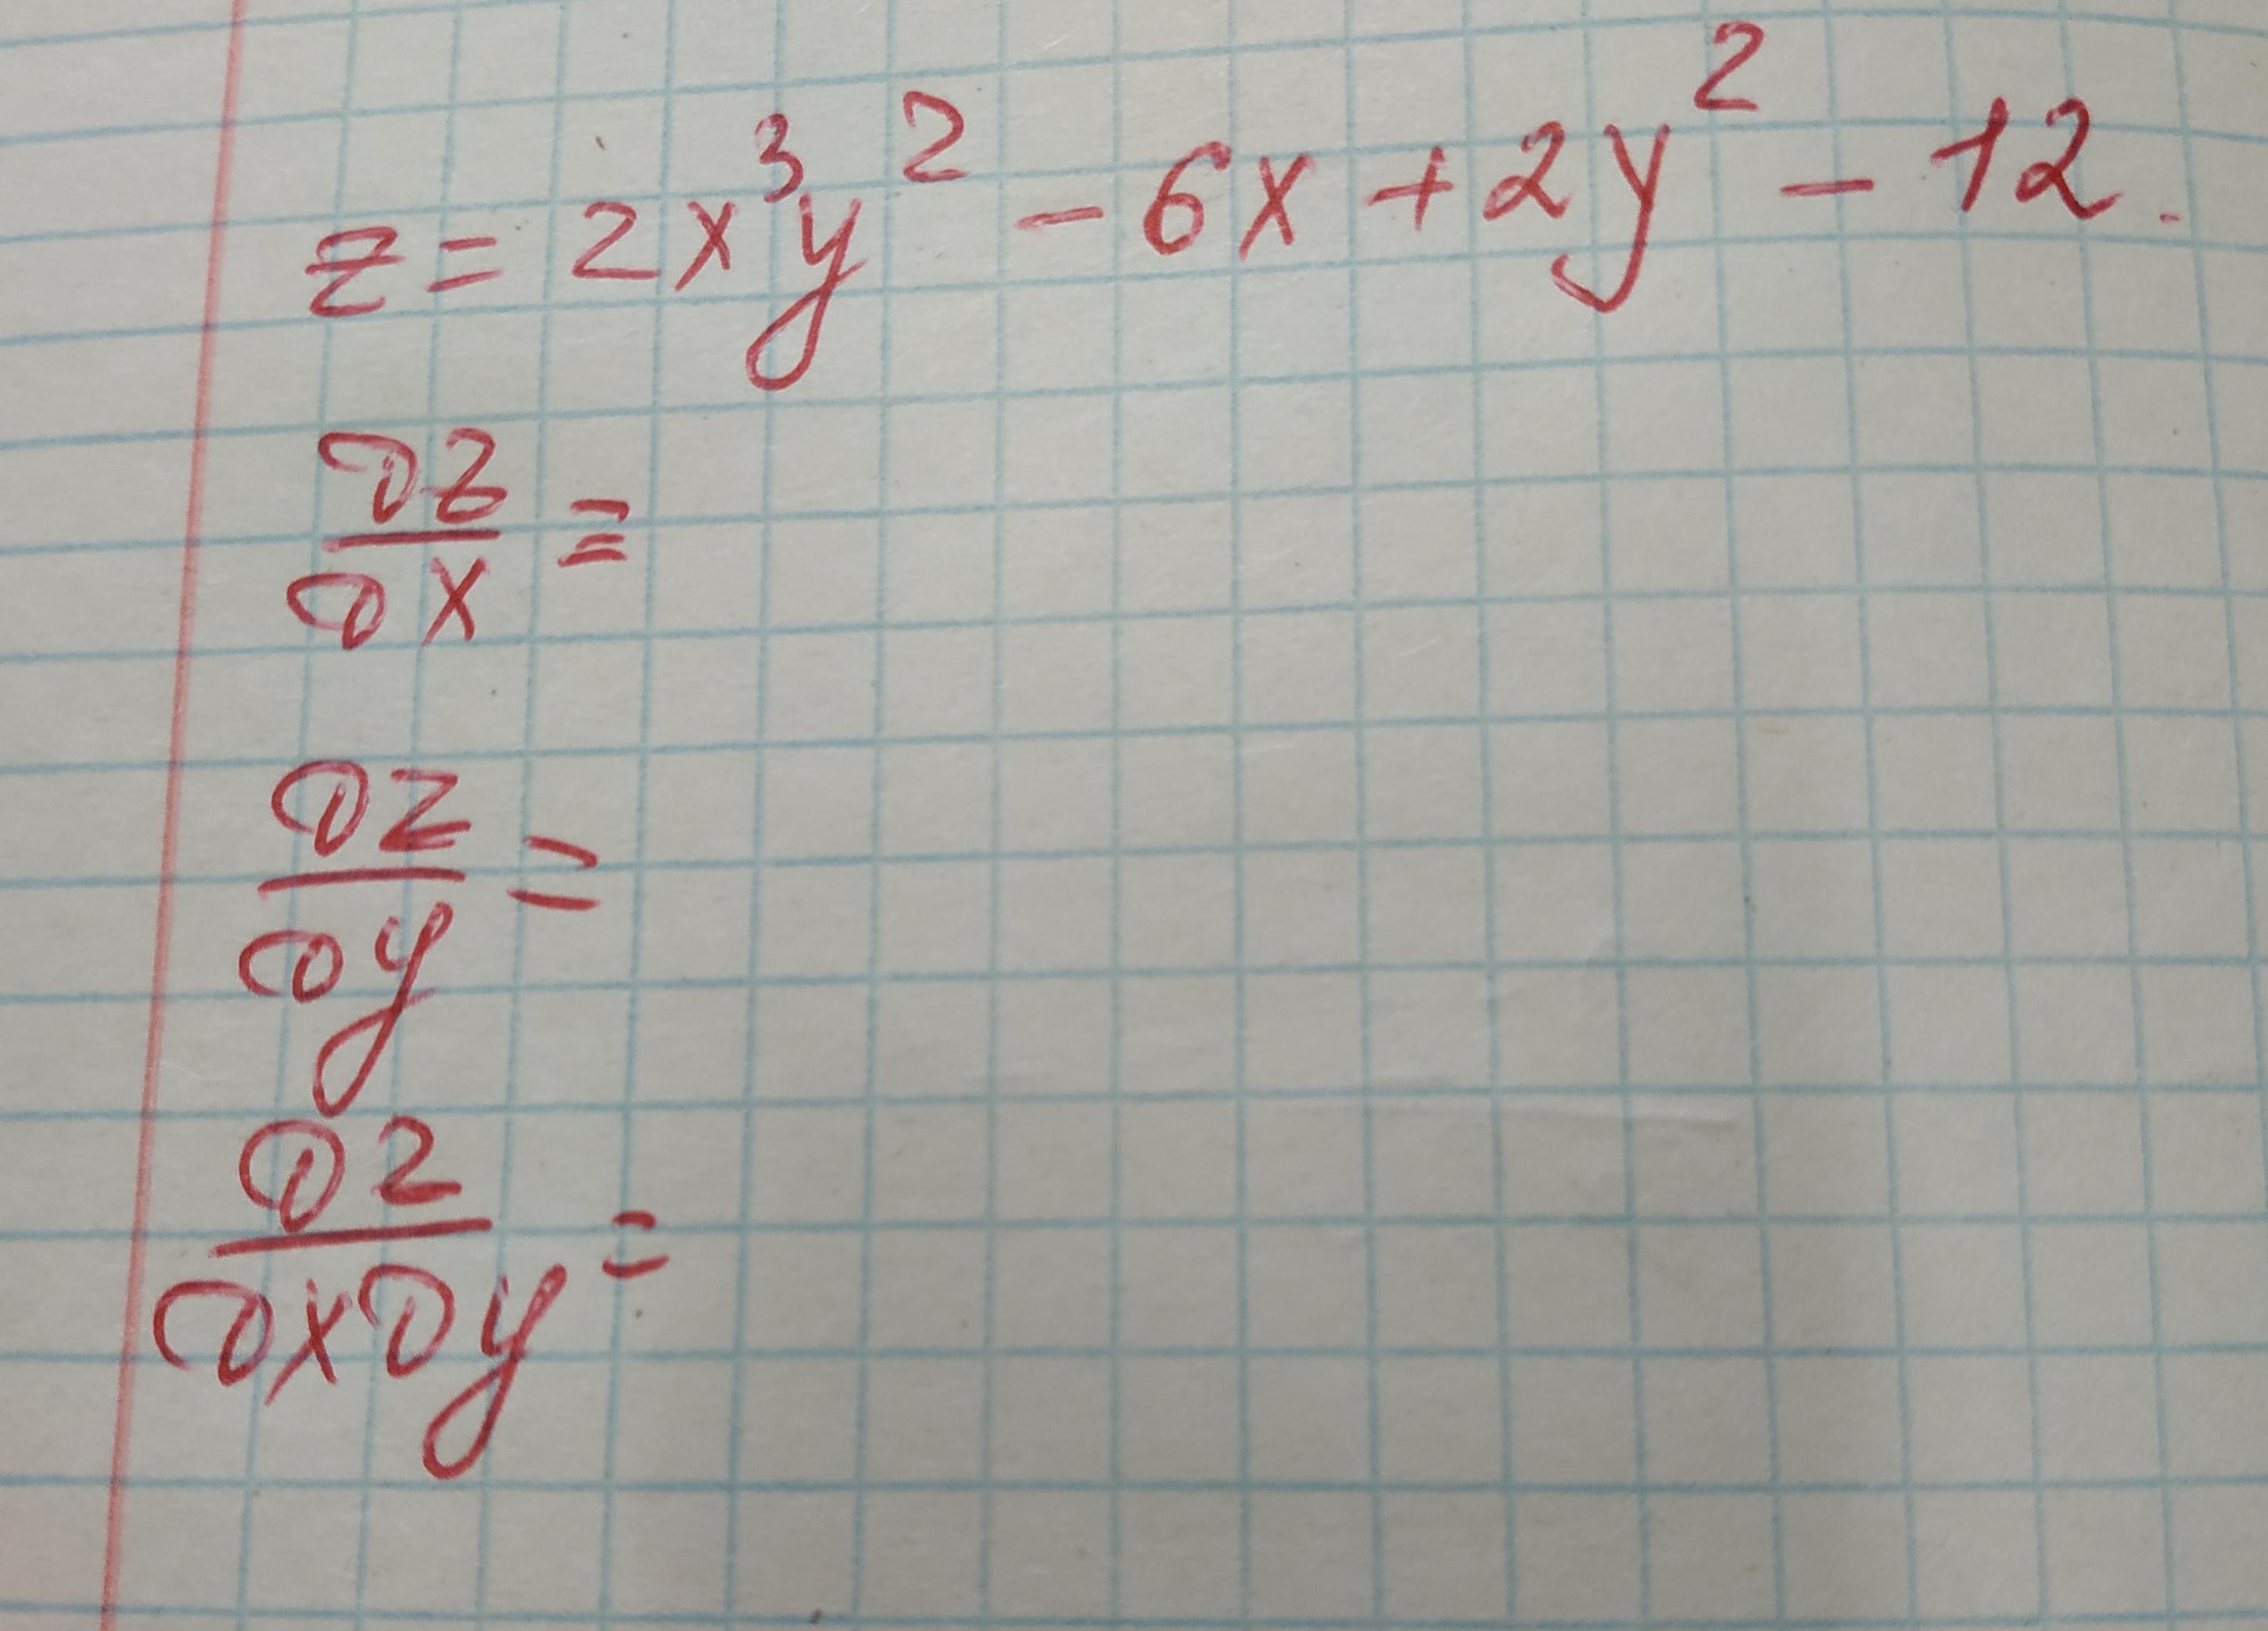 z = 2x³y² - 6x + 2y² - 12.
∂z/∂x =
∂z/∂y =
∂z/∂x∂y =